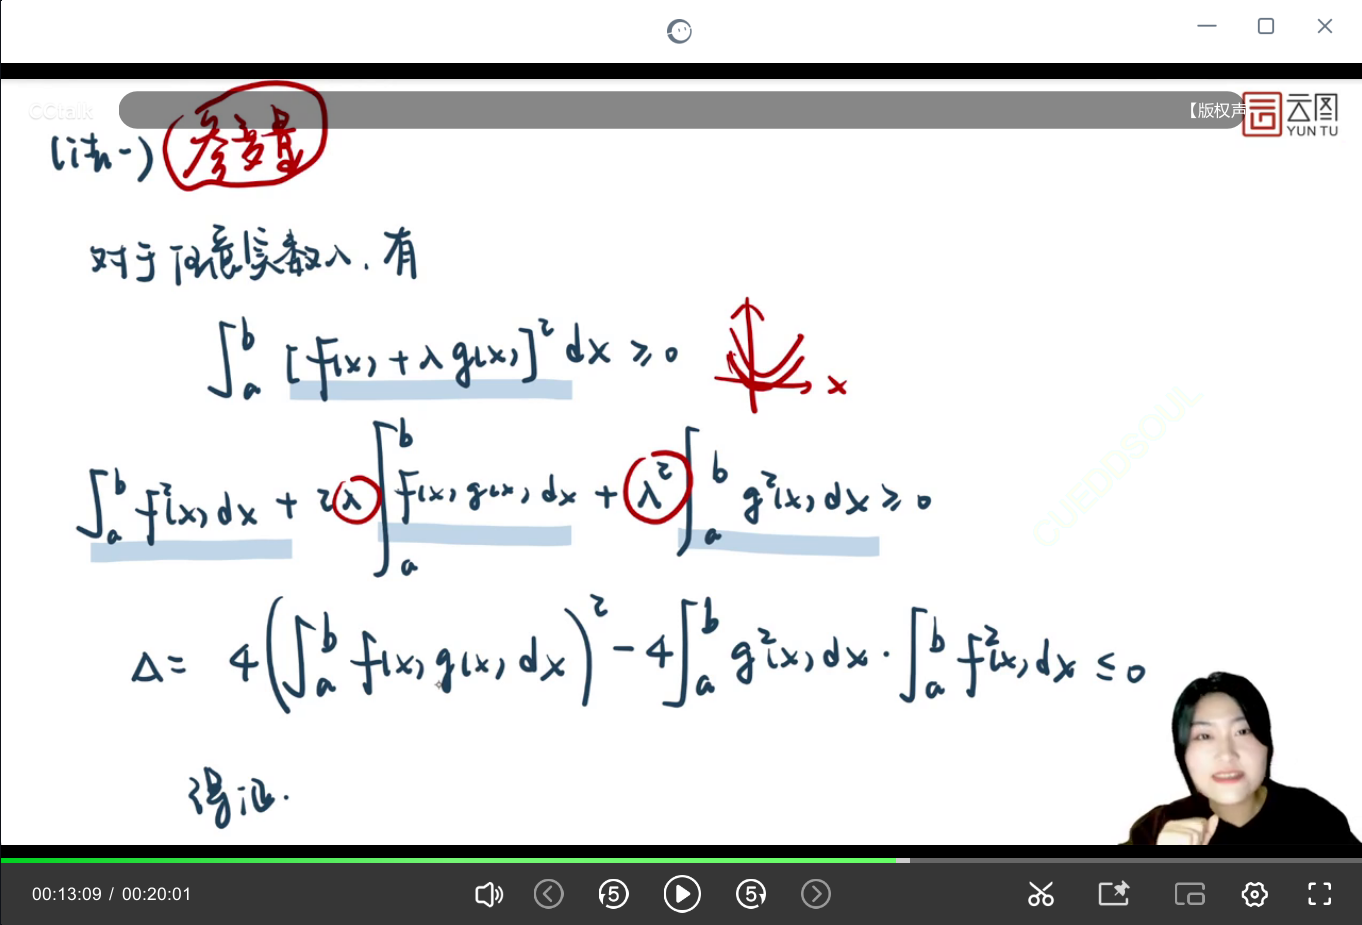 CCtalk
【版权声
云图
YUN TU
(法一) 参变量
对于任意实数λ,有
∫_a^b [f(x)+λg(x)]² dx ≥ 0
x
∫_a^b f²(x)dx + 2λ∫_a^b f(x)g(x)dx + λ²∫_a^b g²(x)dx ≥ 0
CUEDDSOUL
Δ= 4(∫_a^b f(x)g(x)dx)² - 4∫_a^b g²(x)dx · ∫_a^b f²(x)dx ≤ 0
得证.
00:13:09 / 00:20:01
5
5